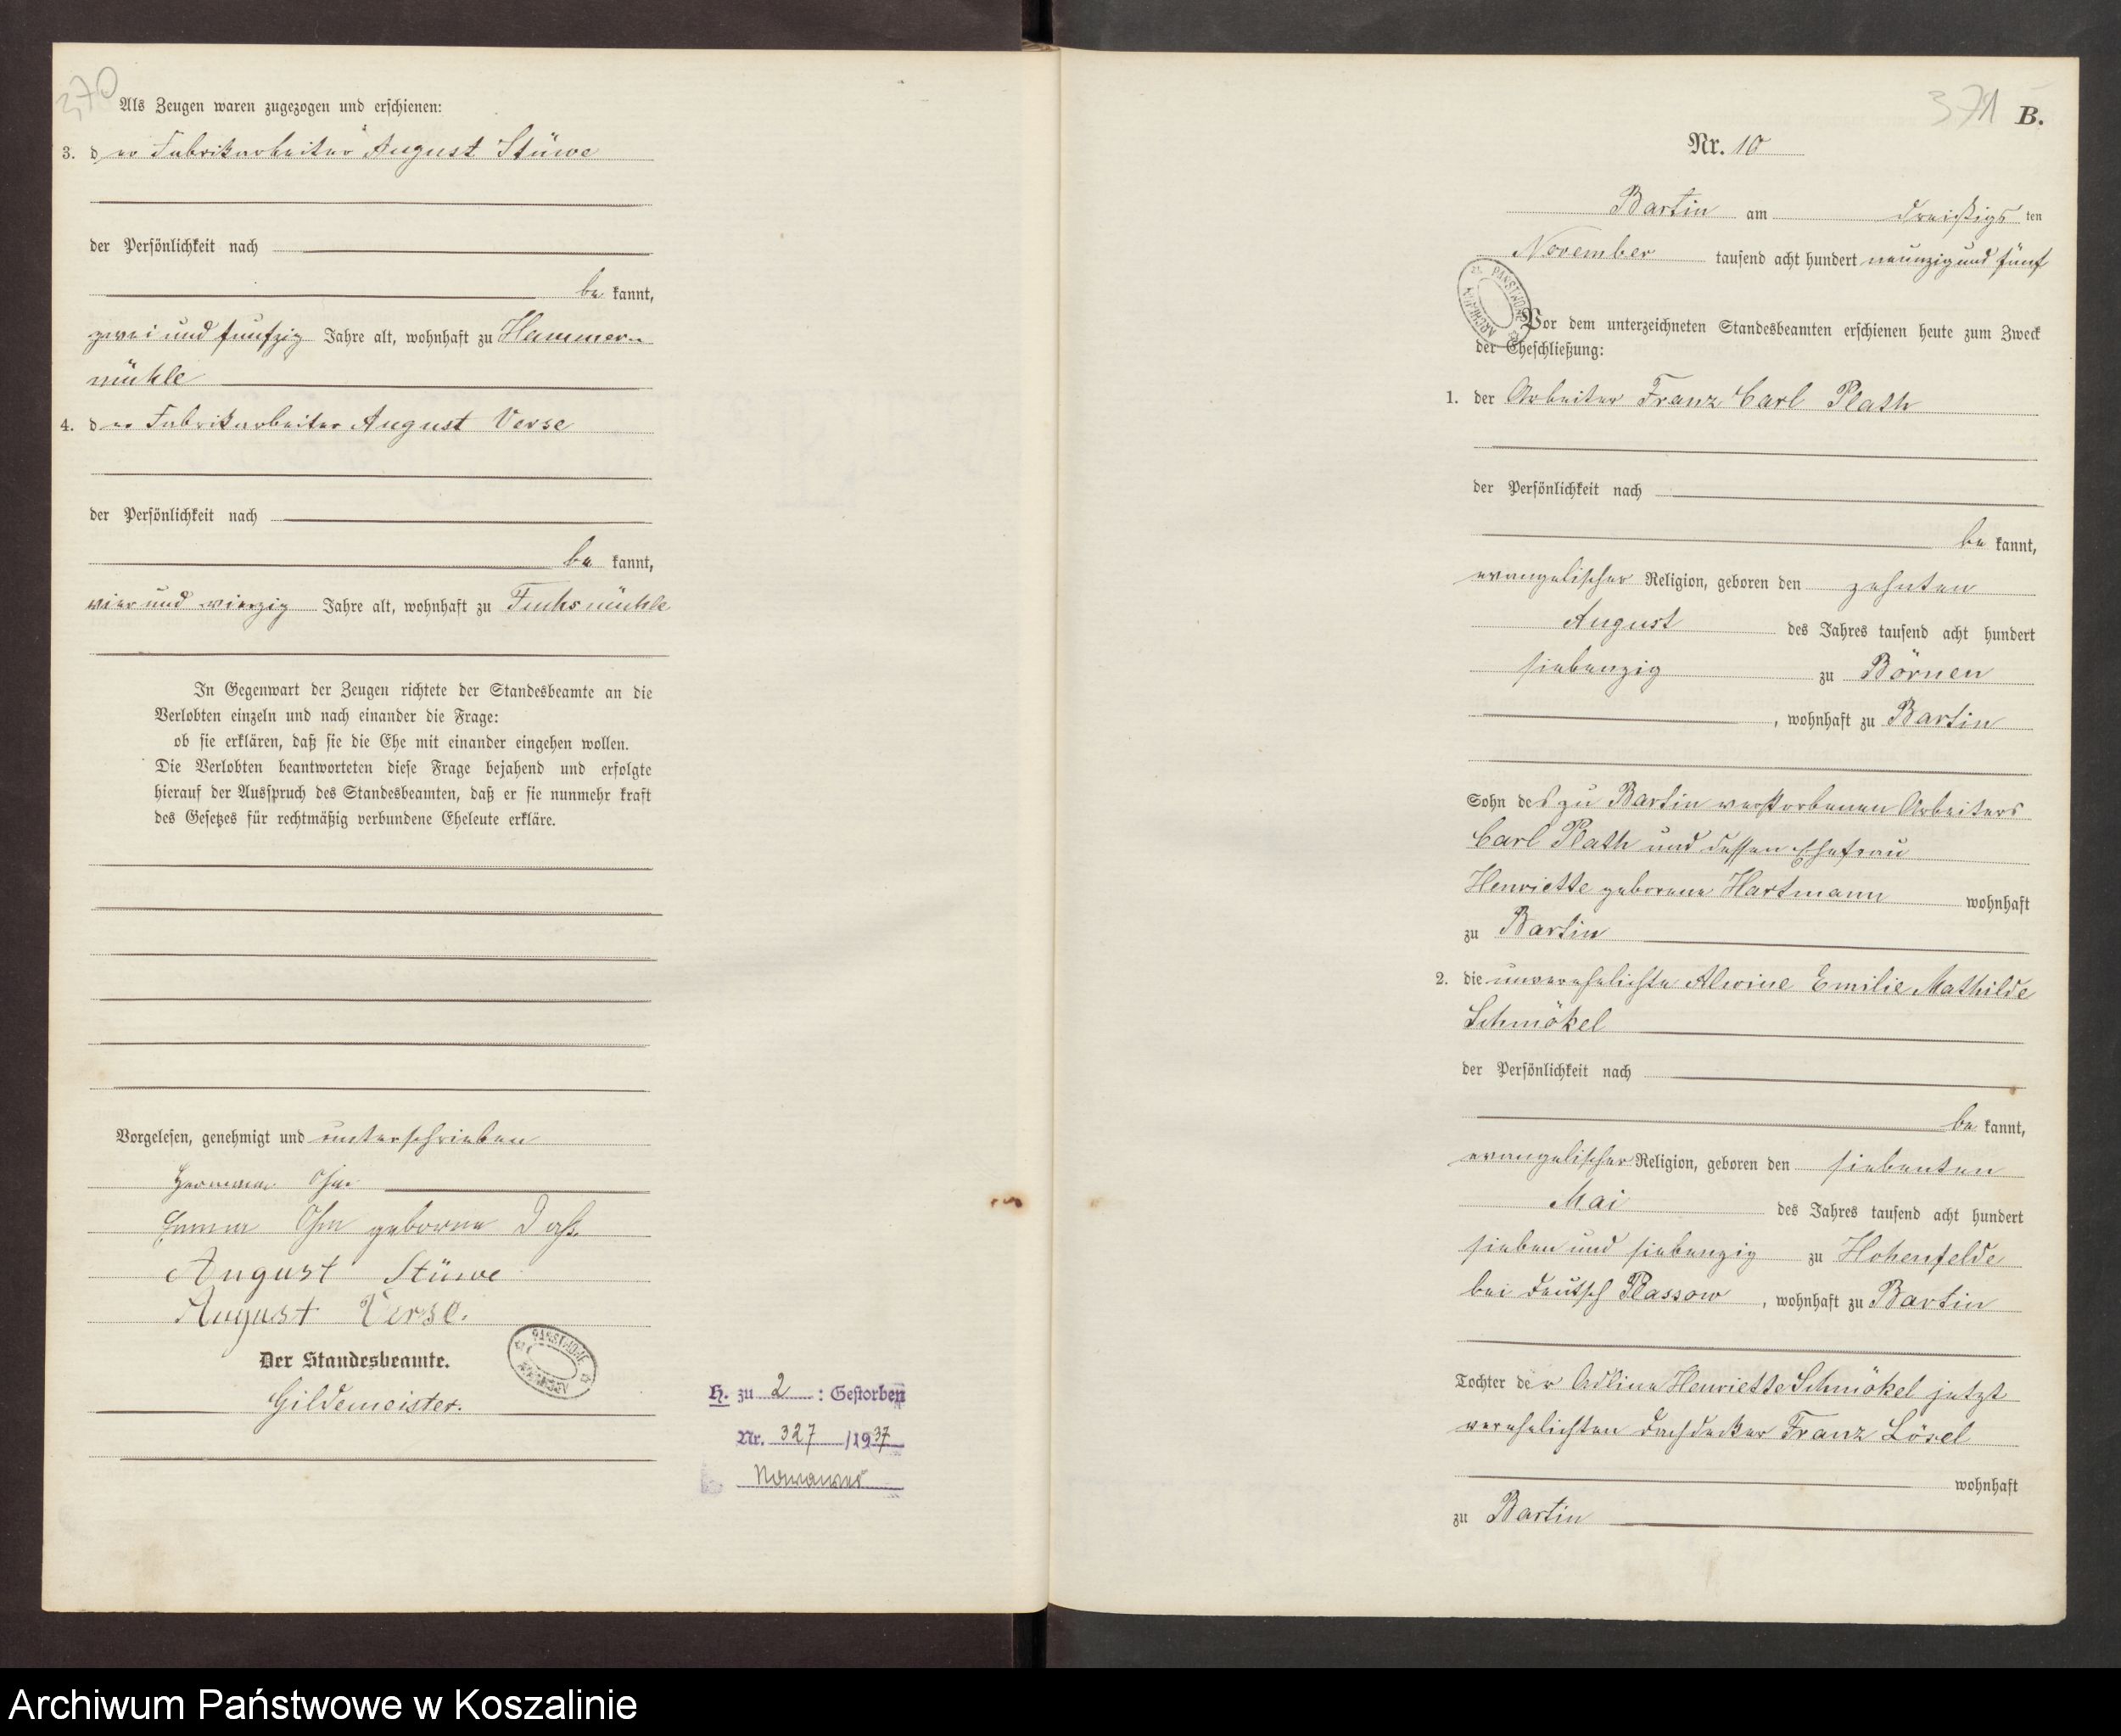 370
Als Zeugen waren zugezogen und erschienen:
3. der Fabrikarbeiter August Stüwe
der Persönlichkeit nach
be kannt,
zwei und fünfzig Jahre alt, wohnhaft zu Hammer-
mühle
4. der Fabrikarbeiter August Verse
der Persönlichkeit nach
be kannt,
vier und vierzig Jahre alt, wohnhaft zu Fuchsmühle
In Gegenwart der Zeugen richtete der Standesbeamte an die
Verlobten einzeln und nach einander die Frage:
ob sie erklären, daß sie die Ehe mit einander eingehen wollen.
Die Verlobten beantworteten diese Frage bejahend und erfolgte
hierauf der Ausspruch des Standesbeamten, daß er sie nunmehr kraft
des Gesetzes für rechtmäßig verbundene Eheleute erkläre.
Vorgelesen, genehmigt und unterschrieben
Hermann Ohm
Emma Ohm geborene
August Stüwe
August Verse.
Der Standesbeamte.
Gildemeister.
PAŃSTWOWE ARCHIWUM
H. zu 2 : Gestorben
Nr. 327 /1937
Nowawes
371
B.
Nr. 10
Bartin am dreißigs ten
November tausend acht hundert neunzig und fünf
PAŃSTWOWE ARCHIWUM
Vor dem unterzeichneten Standesbeamten erschienen heute zum Zweck
der Eheschließung:
1. der Arbeiter Franz Carl Plath
der Persönlichkeit nach
be kannt,
evangelischer Religion, geboren den zehnten
August des Jahres tausend acht hundert
siebenzig zu Börnen
, wohnhaft zu Bartin
Sohn des zu Bartin verstorbenen Arbeiters
Carl Plath und dessen Ehefrau
Henriette geborene Hartmann wohnhaft
zu Bartin
2. die unverehelichte Alwine Emilie Mathilde
Schmökel
der Persönlichkeit nach
be kannt,
evangelischer Religion, geboren den siebenten
Mai des Jahres tausend acht hundert
sieben und siebenzig zu Hohenfelde
bei Deutsch Plassow, wohnhaft zu Bartin
Tochter der Adline Henriette Schmökel jetzt
verehelichten Dachdecker Franz Lösel
wohnhaft
zu Bartin
Archiwum Państwowe w Koszalinie